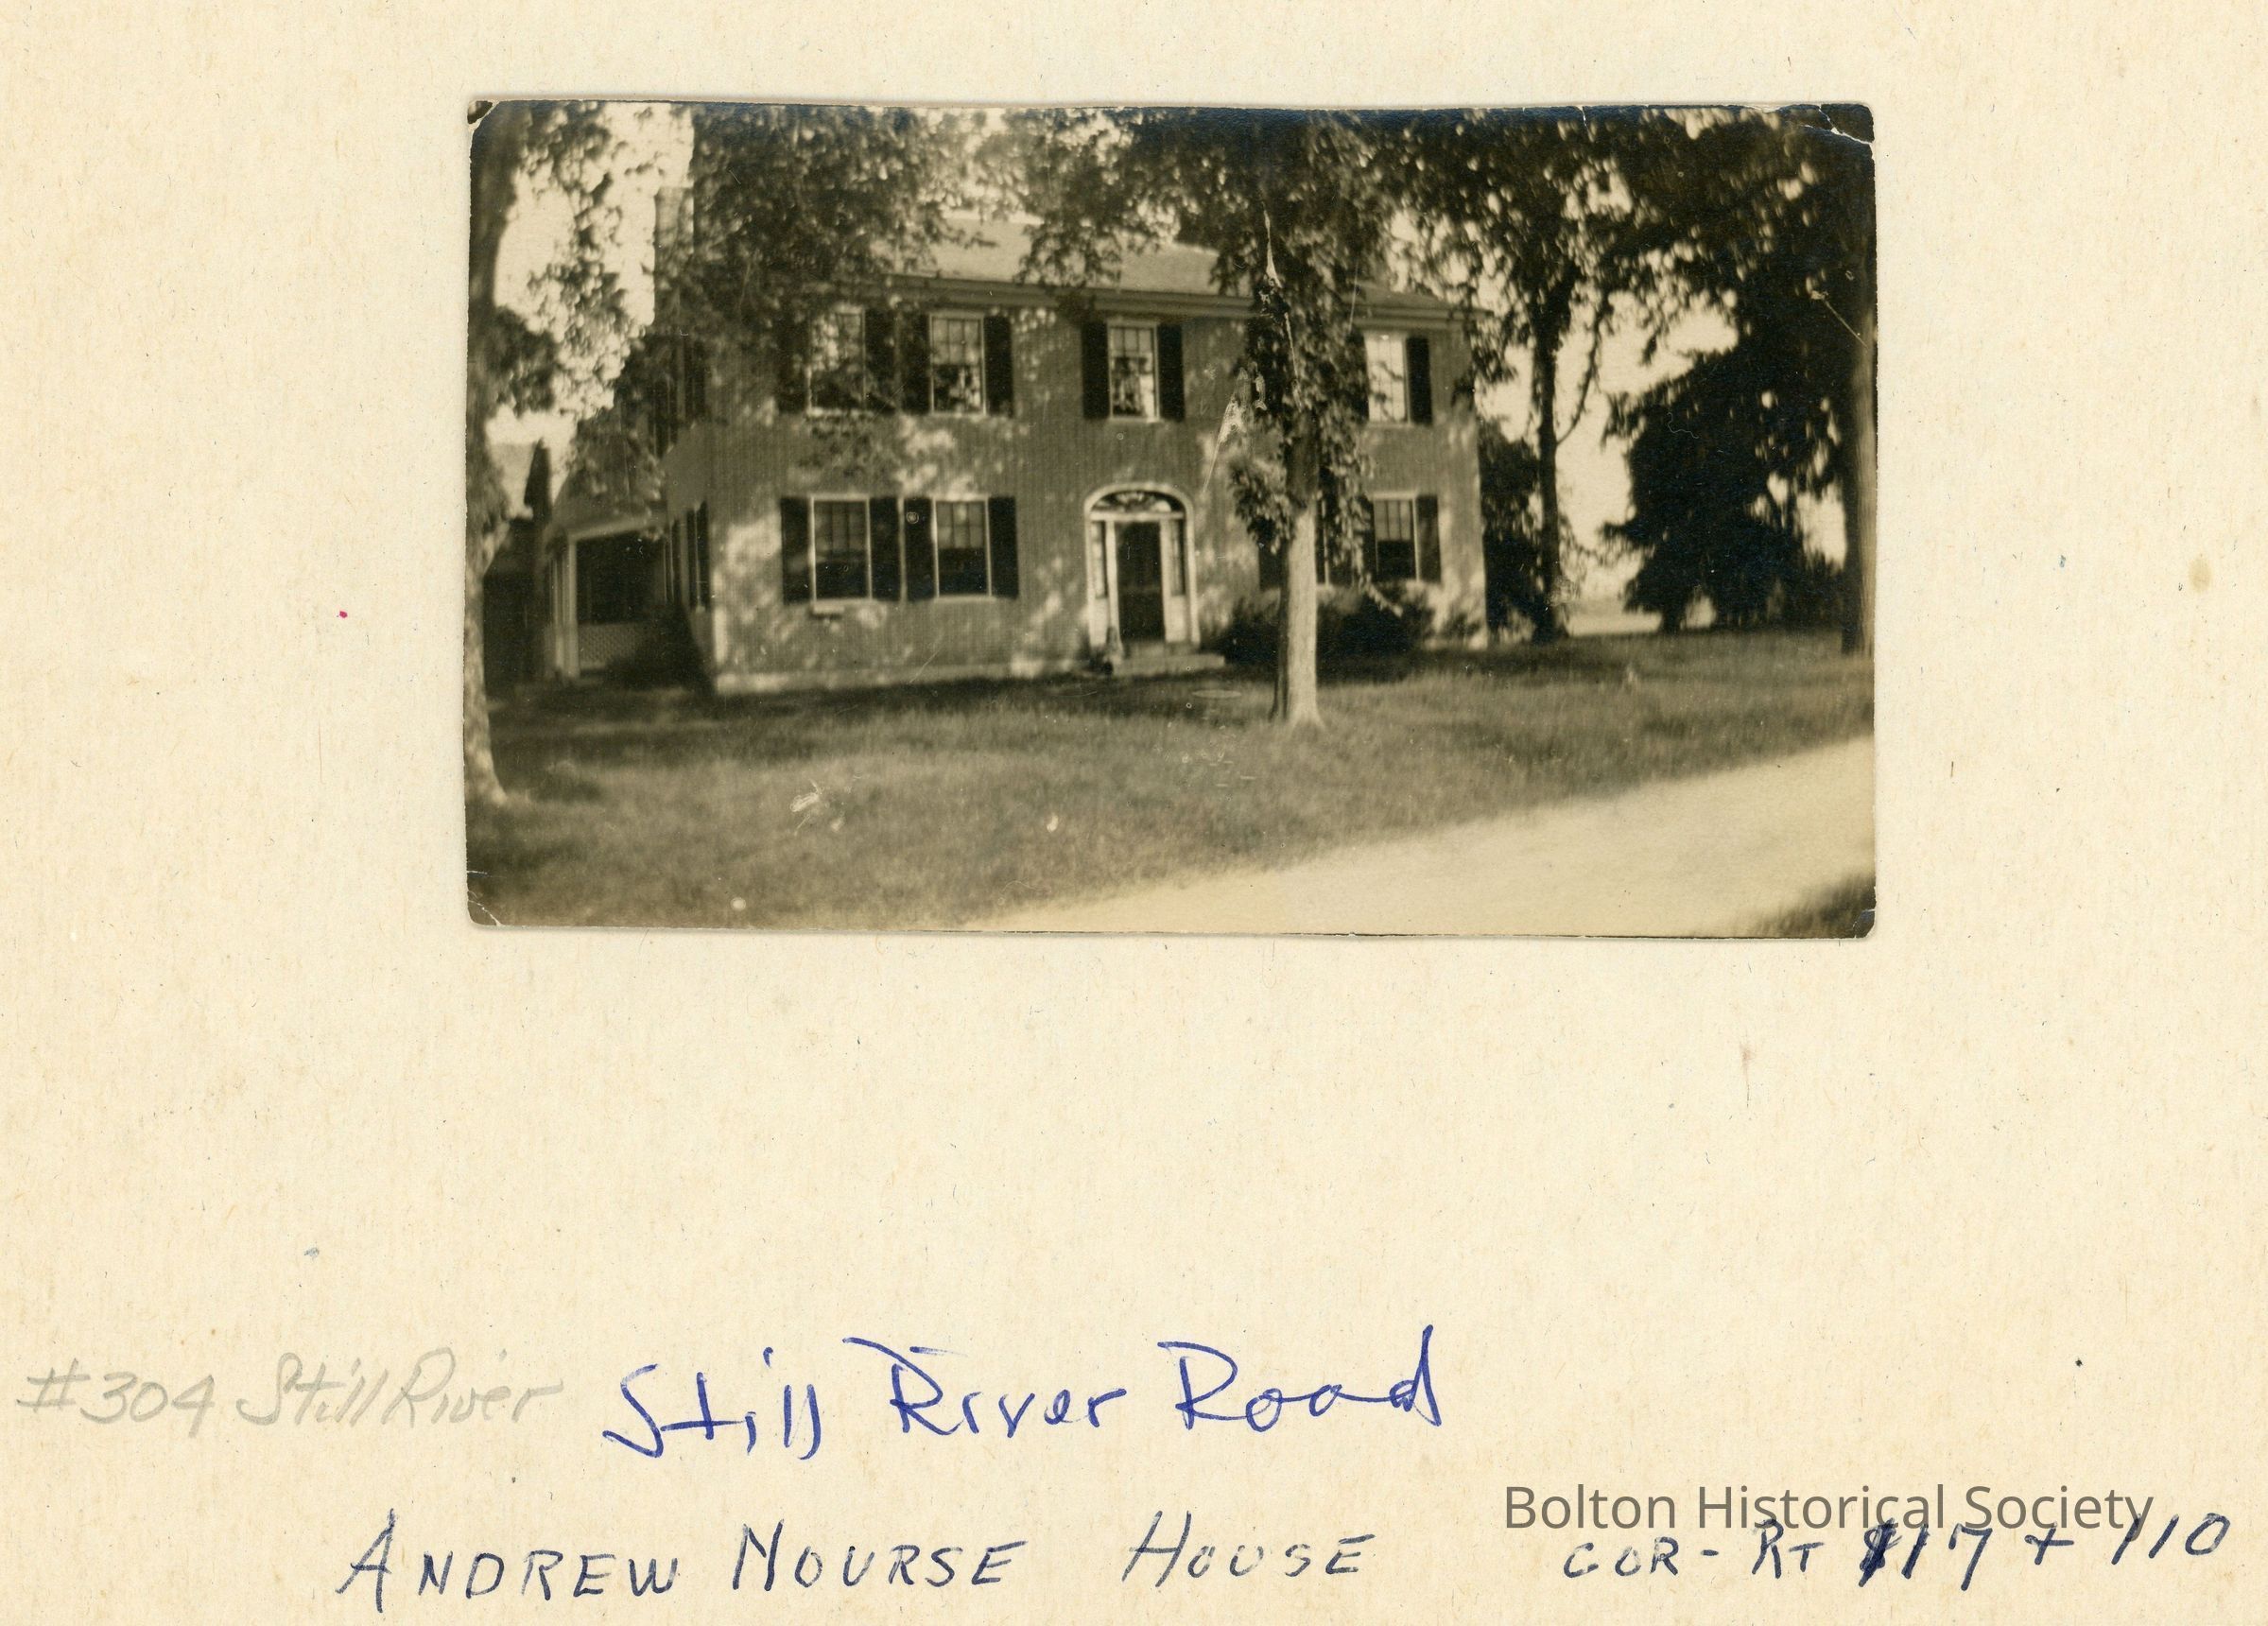 #304 Still River Still River Road
Bolton Historical Society
ANDREW NOURSE HOUSE COR - RT 117 + 110